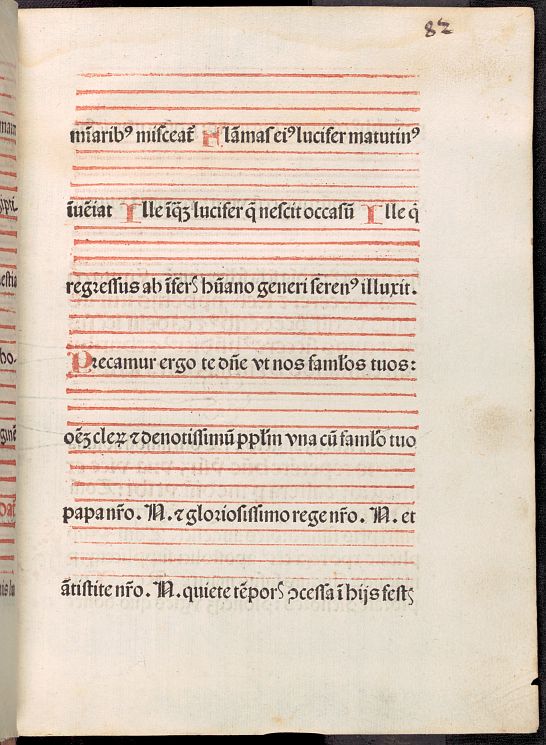 82
mīarib⁹ misceat᷑ Flāmas ei⁹ lucifer matutin⁹
īuēiat Ille īq̄ꝫ lucifer q̄ nescit occasū Ille q̇
regressus ab īferꝭ hūano generi seren⁹ illuxit.
Precamur ergo te dn̄e vt nos famľos tuos:
oēꝫ cleꝝ ⁊ deuotissimū pp̄lm vna cū famľo tuo
papa nr̄o. N. ⁊ gloriosissimo rege nr̄o. N. et
ātistite nr̄o. N. quiete tēporꝭ ꝯcessa ī hijs festꝭ